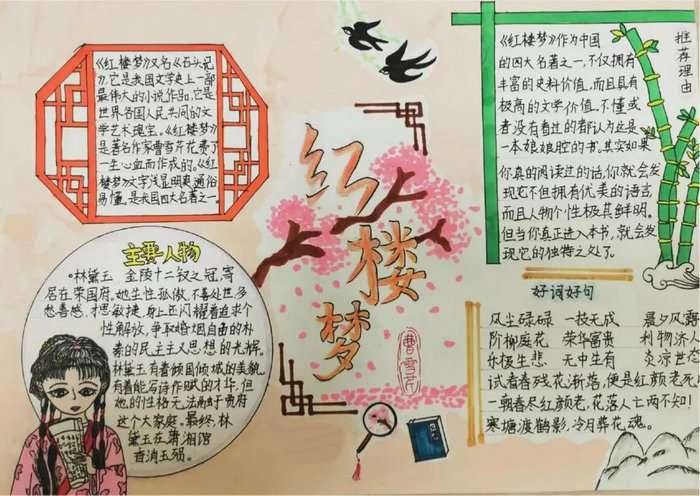 《红楼梦》又名《石头记
》，它是我国文学史上一部
最伟大的小说作品，它是
世界各国人民共同的文
学艺术瑰宝。《红楼梦》
是著名作家曹雪芹花费了
一生心血而作成的。《红
楼梦》文字浅显明爽通俗
易懂，是我国四大名著之一。
主要人物
林黛玉 金陵十二钗之冠，寄
居在荣国府。她生性孤傲，不善处世，多
愁善感，才思敏捷，身上还闪耀着追求个
性解放，争取婚姻自由的朴
素的民主主义思想的光辉。
林黛玉有着倾国倾城的美貌，
有着能写诗作赋的才华，但
她的性格无法融于贾府
这个大家庭。最终，林
黛玉在潇湘馆
香消玉殒。
红楼梦
曹雪芹
推荐理由
《红楼梦》作为中国
的四大名著之一，不仅拥有
丰富的史料价值，而且具有
极高的文学价值，不懂或
者没有看过的者都认为这是
一本娘娘腔的书，其实如果
你真的阅读过的话，你就会发
现它不但拥有优美的语言
而且人物个性极其鲜明。
但当你真正进入本书，就会发
现它的独特之处了。
好词好句
风尘碌碌 一技无成 晨夕风露
阶柳庭花 荣华富贵 利物济人
乐极生悲 无中生有 炎凉世态
试看春残花渐落，便是红颜老死
一朝春尽红颜老，花落人亡两不知！
寒塘渡鹤影，冷月葬花魂。